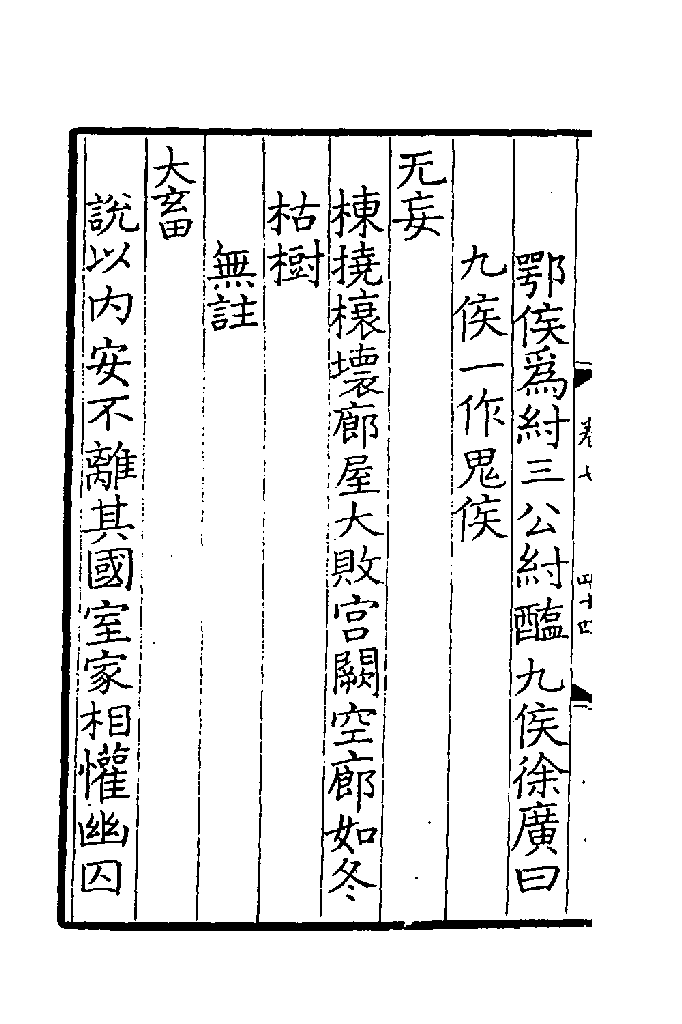 卷七
四十四
鄂侯爲紂三公紂醢九侯徐廣曰
九侯一作鬼侯
无妄
棟撓榱壞廊屋大敗宫闕空廊如冬
枯樹
無註
大畜
說以内安不離其國室家相懽幽囚